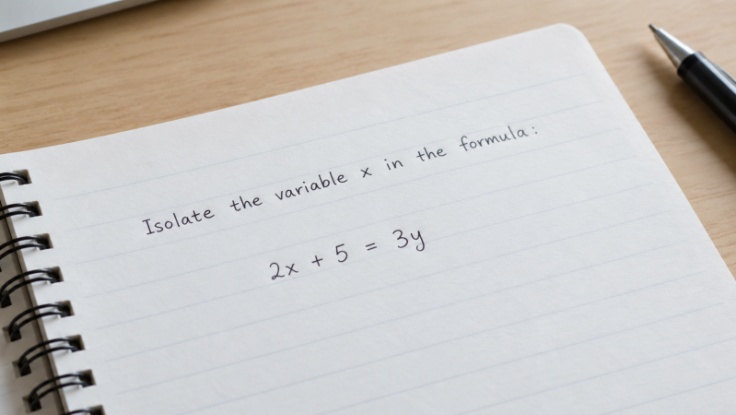 Isolate the variable x in the formula:
2x + 5 = 3y